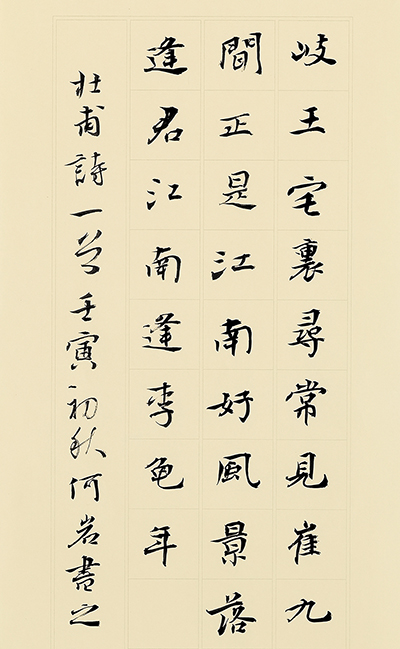 岐王宅裏尋常見崔九
聞正是江南好風景落
逢君江南逢李龜年
杜甫詩一首壬寅初秋何岩書之